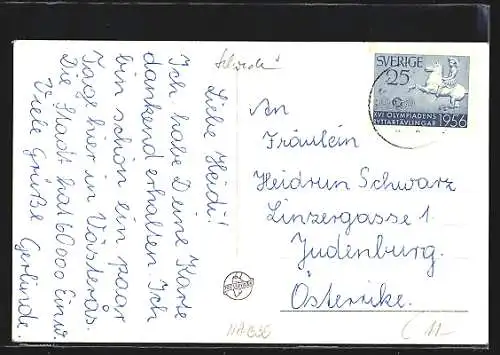 Schweden
Liebe Heidi!
Ich habe Deine Karte
dankend erhalten. Ich
bin schön ein paar
Tage hier in Västerås.
Die Stadt hat 60000 Einw.
Viele Grüße Gerlinde.
SVERIGE
25
XVI OLYMPIADENS
RYTTARTÄVLINGAR 1956
An
Fräulein
Heidrun Schwarz
Linzergasse 1
Judenburg.
Österrike.